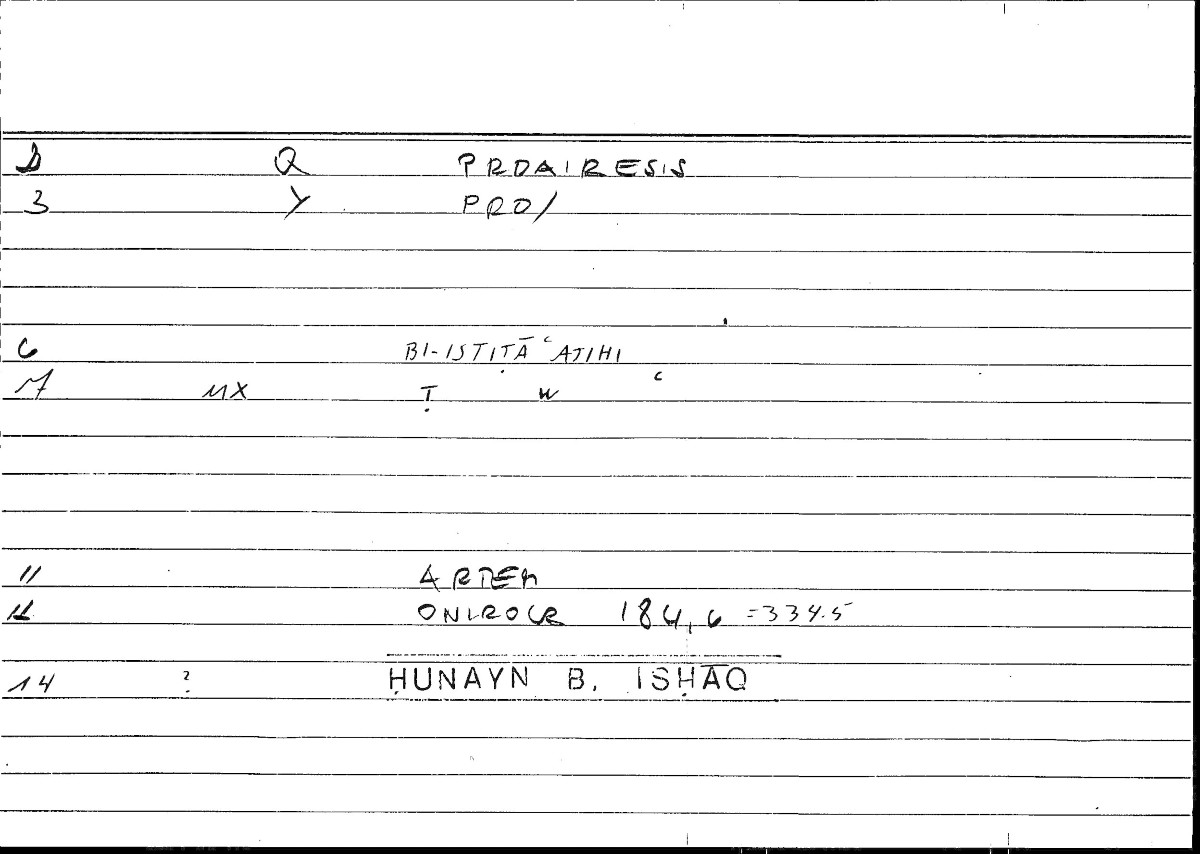 2 Q PROAIRESIS
3 Y PRO/
6 BI-ISTIṬĀ ʿATIHI
7 MX Ṭ W ʿ
11 ARTEM
12 ONIROCR 184,6 =334.5
14 ? ḤUNAYN B. ISḤĀQ